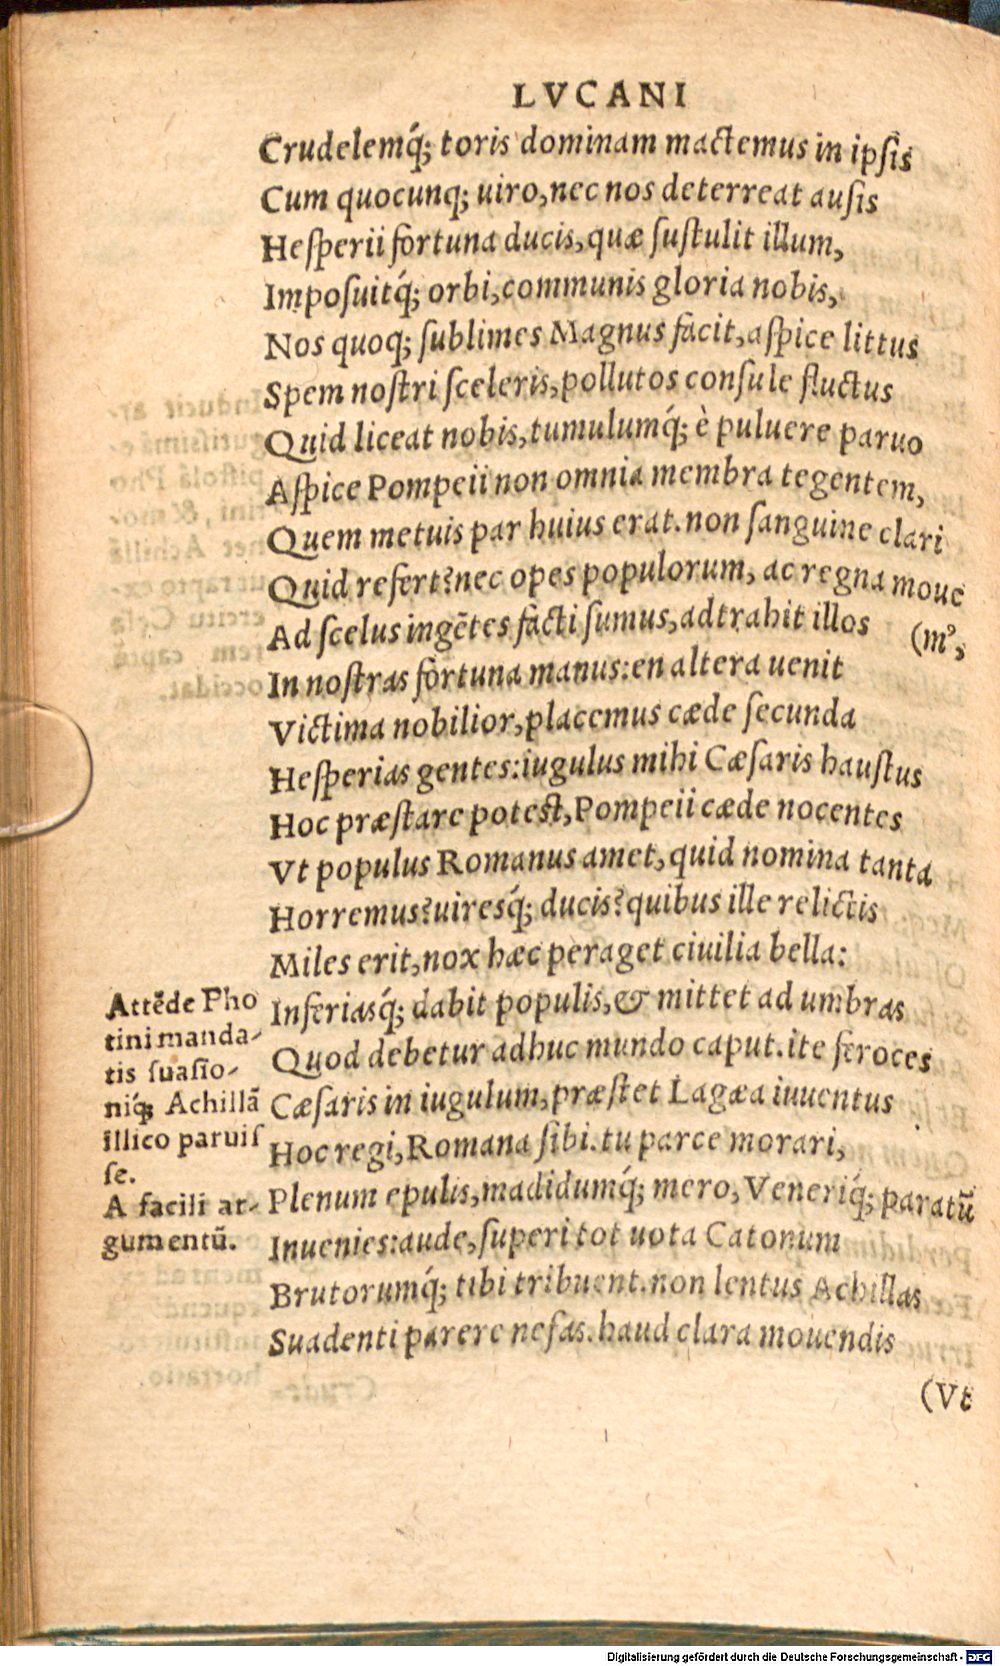 LVCANI
Crudelemq́; toris dominam mactemus in ipſis
Cum quocunq; uiro, nec nos deterreat auſis
Heſperii fortuna ducis, quæ ſuſtulit illum,
Impoſuitq́; orbi, communis gloria nobis,
Nos quoq; ſublimes Magnus facit, aſpice littus
Spem noſtri ſceleris, pollutos conſule fluctus
Quid liceat nobis, tumulumq́; è puluere paruo
Aſpice Pompeii non omnia membra tegentem,
Quem metuis par huius erat. non ſanguine clari
Quid refert? nec opes populorum, ac regna moue
Ad ſcelus ingẽtes facti ſumus, adtrahit illos (m⁹,
In noſtras fortuna manus: en altera uenit
Victima nobilior, placemus cæde ſecunda
Heſperias gentes: iugulus mihi Cæſaris hauſtus
Hoc præſtare poteſt, Pompeii cæde nocentes
Vt populus Romanus amet, quid nomina tanta
Horremus? uiresq́; ducis? quibus ille relictis
Miles erit, nox hæc peraget ciuilia bella:
Inferiasq́; dabit populis, & mittet ad umbras
Quod debetur adhuc mundo caput. ite feroces
Cæſaris in iugulum, præſtet Lagæa iuuentus
Hoc regi, Romana ſibi. tu parce morari,
Plenum epulis, madidumq́; mero, Veneriq́; paratũ
Inuenies: aude, ſuperi tot uota Catonum
Brutorumq́; tibi tribuent. non lentus Achillas
Suadenti parere nefas. haud clara mouendis
(Vt
Attẽde Pho
tini manda-
tis ſuaſio-
niq́; Achillã
illico paruiſ
ſe.
A facili ar-
gumentũ.
Digitalisierung gefördert durch die Deutsche Forschungsgemeinschaft - DFG